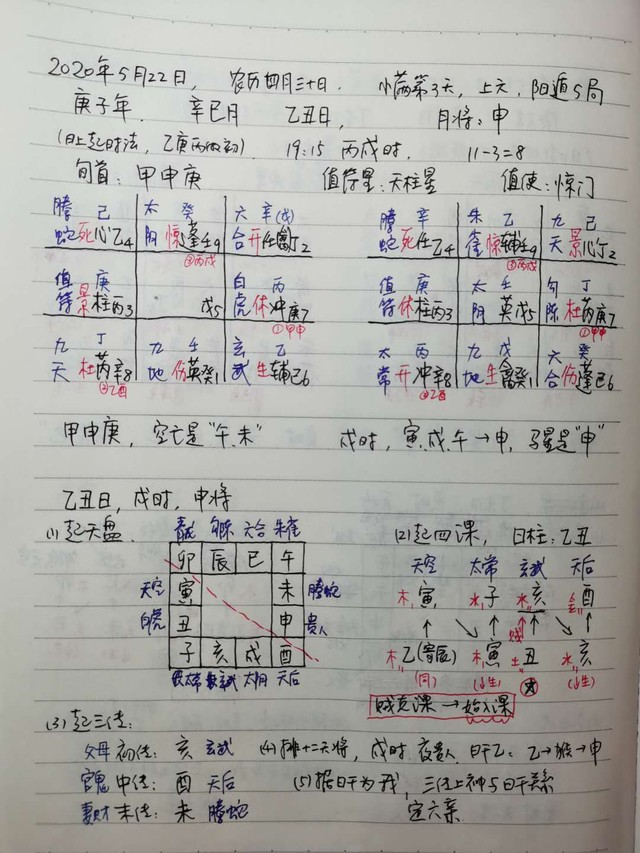 2020年5月22日， 农历四月三十日． 小满第3天，上元，阳遁5局
庚子年． 辛巳月 乙丑日， 月将：申
(日上起时法，乙庚丙做初)． 19:15 丙戌时． 11-3=8
旬首：甲申庚 值符星：天柱星 值使：惊门
螣 己 太 癸 六 辛(戊) 螣 辛 朱 乙 九 己
蛇死心乙4 阴惊蓬壬9 合开任禽丁2 蛇死任乙4 雀惊辅壬9 天景心丁2
③丙戌 ③丙戌
值 庚 白 丙 值 庚 太 壬 勾 丁
符景柱丙3 戊5 虎休冲庚7 符休柱丙3 阴英戊5 陈杜芮庚7
①甲申 ①甲申
九 丁 九 壬 玄 乙 太 丙 九 戊 六 癸
天杜芮辛8 地伤英癸1 武生辅己6 常开冲辛8 地生禽癸1 合伤蓬己6
②乙酉 ②乙酉
甲申庚，空亡是“午.未” 戌时，寅.戌.午→申，马星是“申”
乙丑日，戌时，申将
(1)起天盘． 青龙 勾陈 六合 朱雀 (2)起四课， 日柱：乙丑
卯 辰 巳 午 天空 太常 玄武 天后
天空 寅 未 螣蛇 木寅 水子 水亥 金酉
白虎 丑 申 贵人 贼
子 亥 戌 酉 木乙(寄辰) 木寅 土丑 水亥
太常 玄武 太阴 天后 (同) (上生) (上生)
贼克课→始入课
(3)起三传：
父母 初传：亥 玄武 (4)排十二天将，戌时 夜贵人．日干乙：乙→猴→申
官鬼 中传：酉 天后 (5)据日干为我，三传上神与日干关系
妻财 末传：未 螣蛇 定六亲．